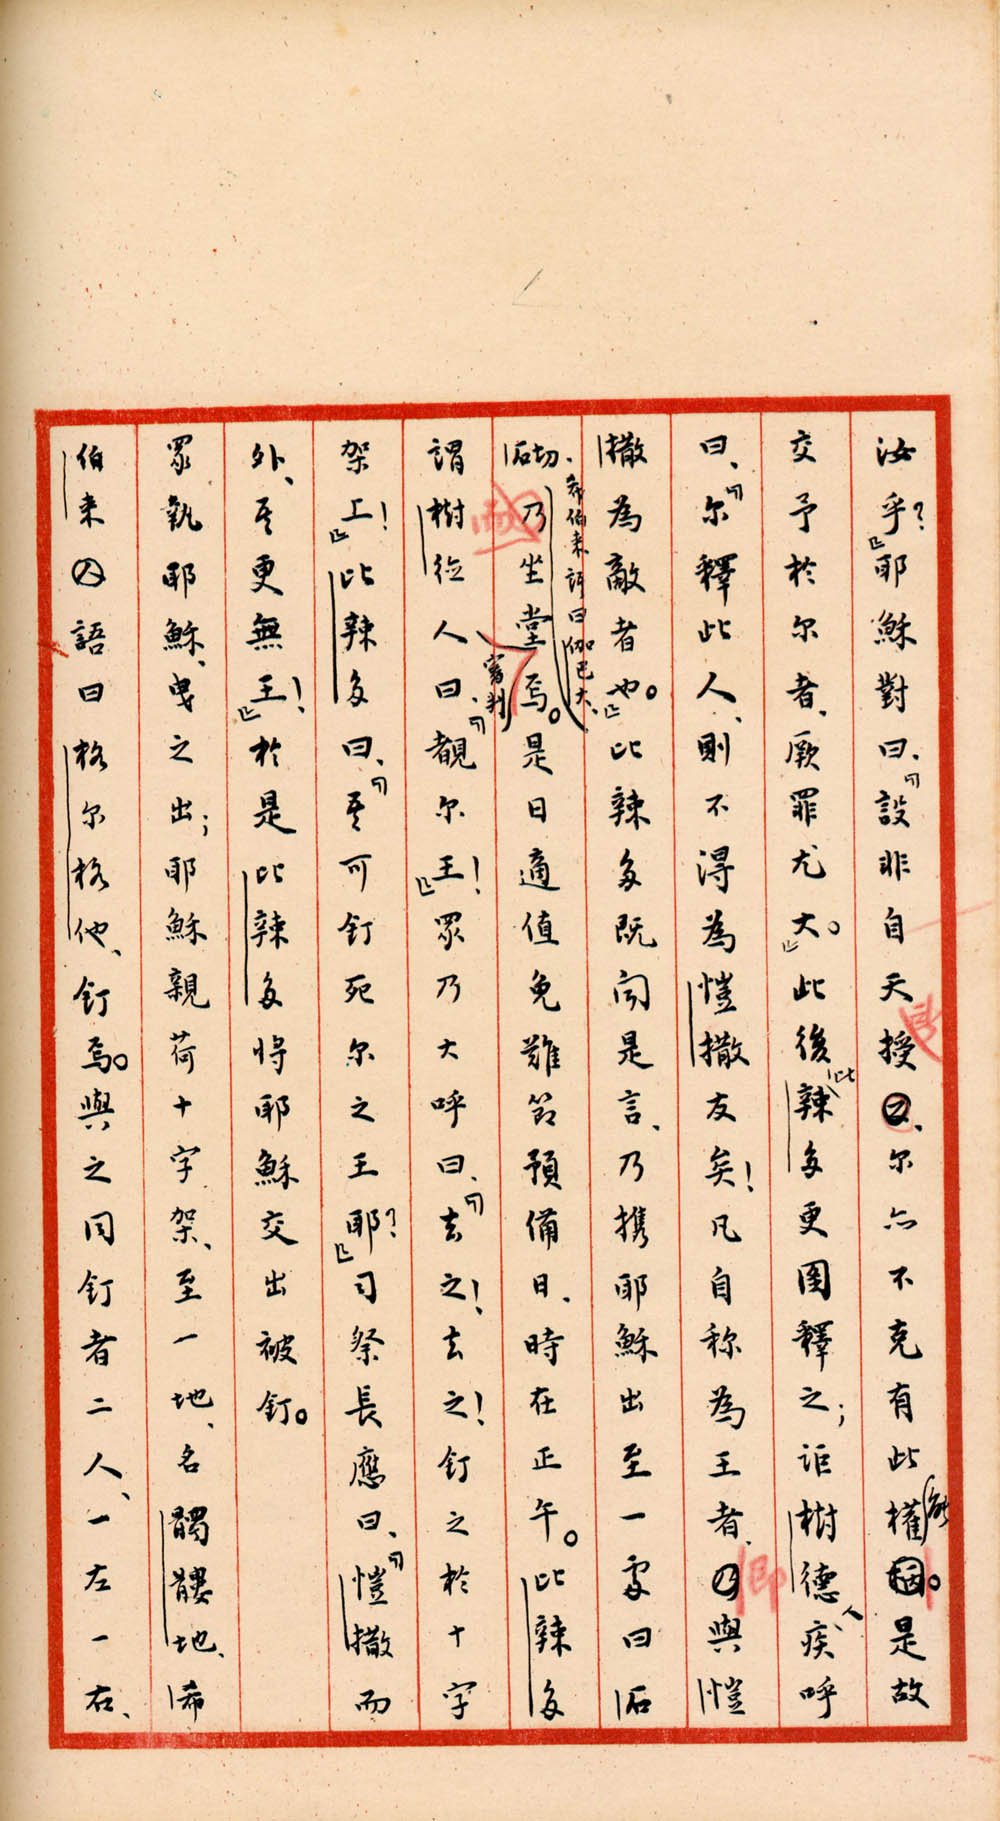 汝乎?』耶穌對曰、『設非自天授、尔亦不克有此權能。是故
交予於尔者、厥罪尤大。』此後比辣多更圖釋之;詎樹德人疾呼
曰、『尔釋此人、則不得為愷撒友矣!凡自称為王者、即與愷
撒為敵者也。』比辣多既聞是言、乃携耶穌出至一處曰石
砌、(希伯来語曰伽巴大、)乃坐堂審判焉。是日適值免難節預備日、時在正午。比辣多
謂樹德人曰、『覩尔王!』眾乃大呼曰、『去之!去之!釘之於十字
架上!』比辣多曰、『吾可釘死尔之王耶?』司祭長應曰、『愷撒而
外、吾更無王!』於是比辣多將耶穌交出被釘。
眾執耶穌、曳之出;耶穌親荷十字架、至一地、名髑髏地、希
伯来語曰格尔格他、釘焉。與之同釘者二人、一左一右、